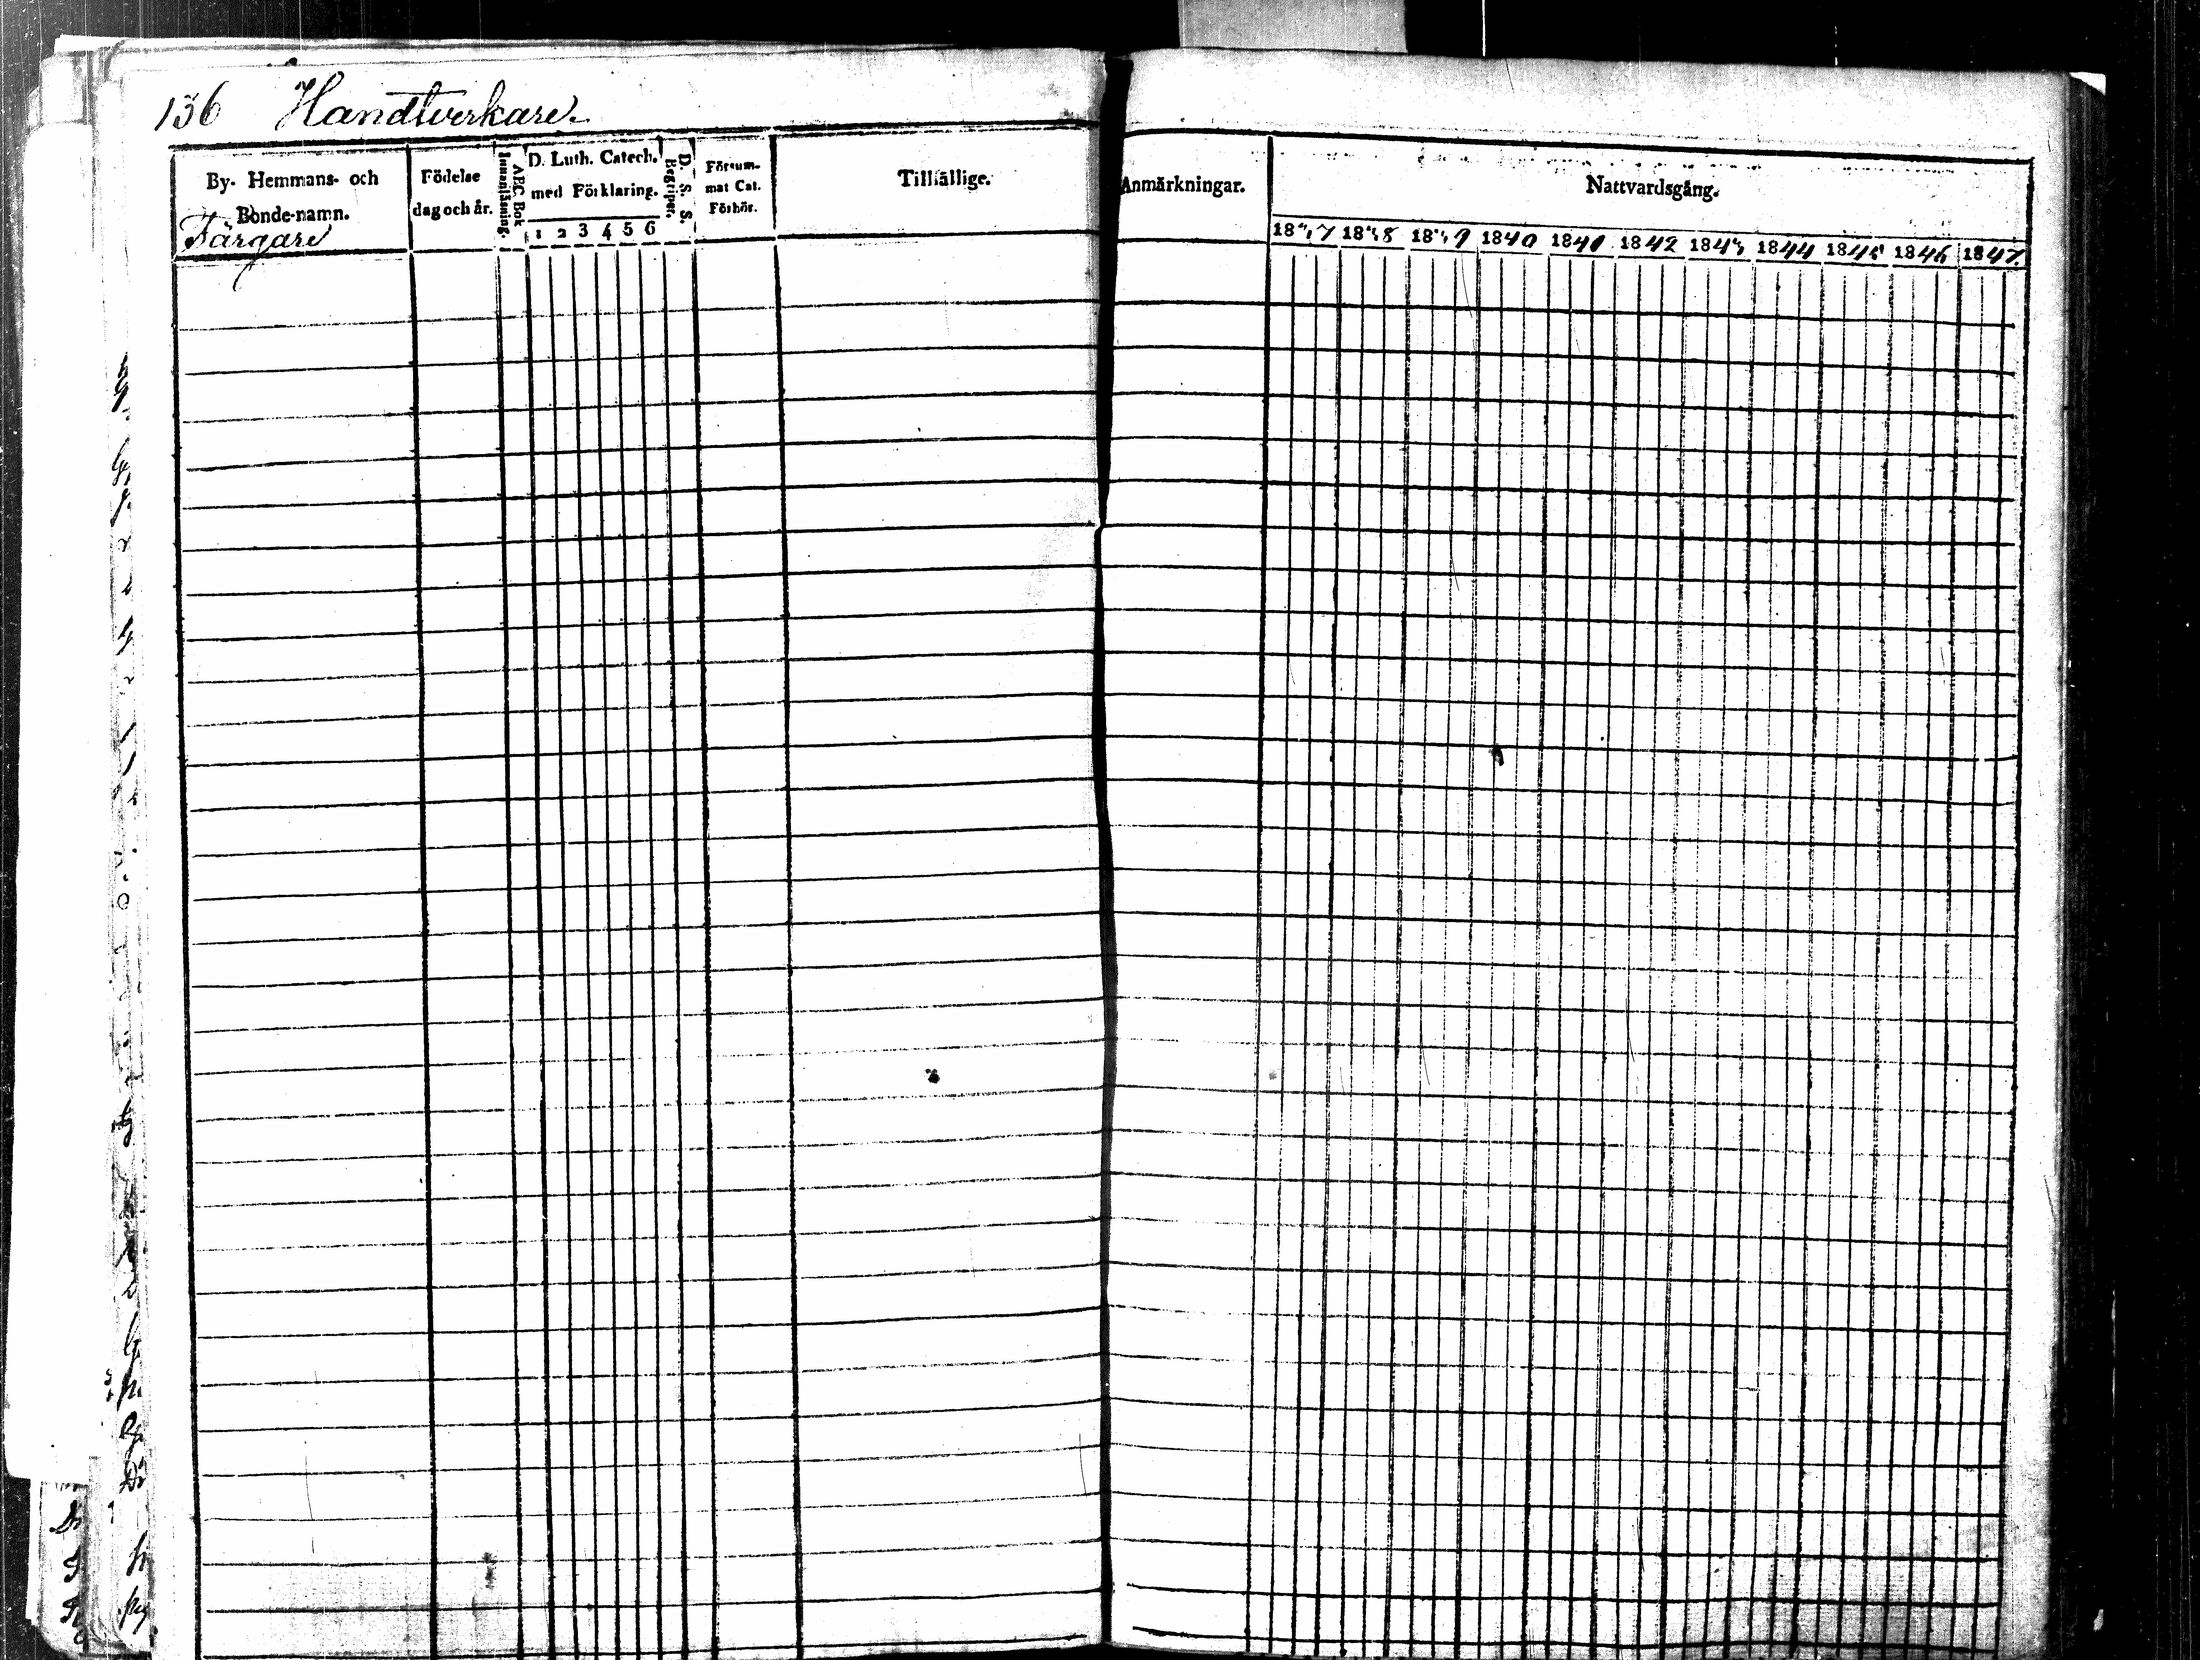 136 Handtverkare
By- Hemmans- och
Bonde-namn.
Färgare
Födelse
dag och år.
Innanläsning.
ABC Bok
D. Luth. Catech.
med Förklaring.
1 2 3 4 5 6
D. S. S.
Begriper.
Försum-
mat Cat.
Förhör.
Tillfällige.
Anmärkningar.
Nattvardsgång.
1837 1838 1839 1840 1841 1842 1843 1844 1845 1846 1847